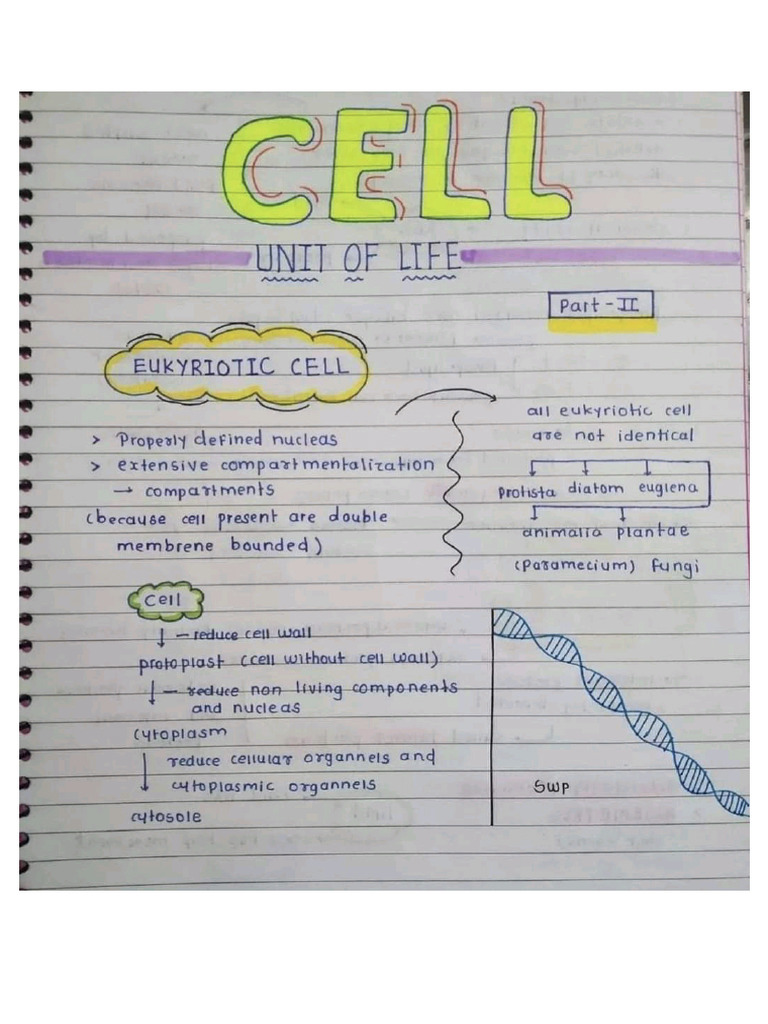 CELL
UNIT OF LIFE
Part-II
EUKYRIOTIC CELL
> Properly defined nucleas
> extensive compartmentalization
→ compartments
(because cell present are double
membrene bounded)
all eukyriotic cell
are not identical
protista diatom euglena
animalia plantae
(Paramecium) fungi
Cell
↓ - reduce cell wall
protoplast (cell without cell wall)
↓ - reduce non living components
and nucleas
cytoplasm
↓ reduce cellular organnels and
cytoplasmic organnels
cytosole
SWP